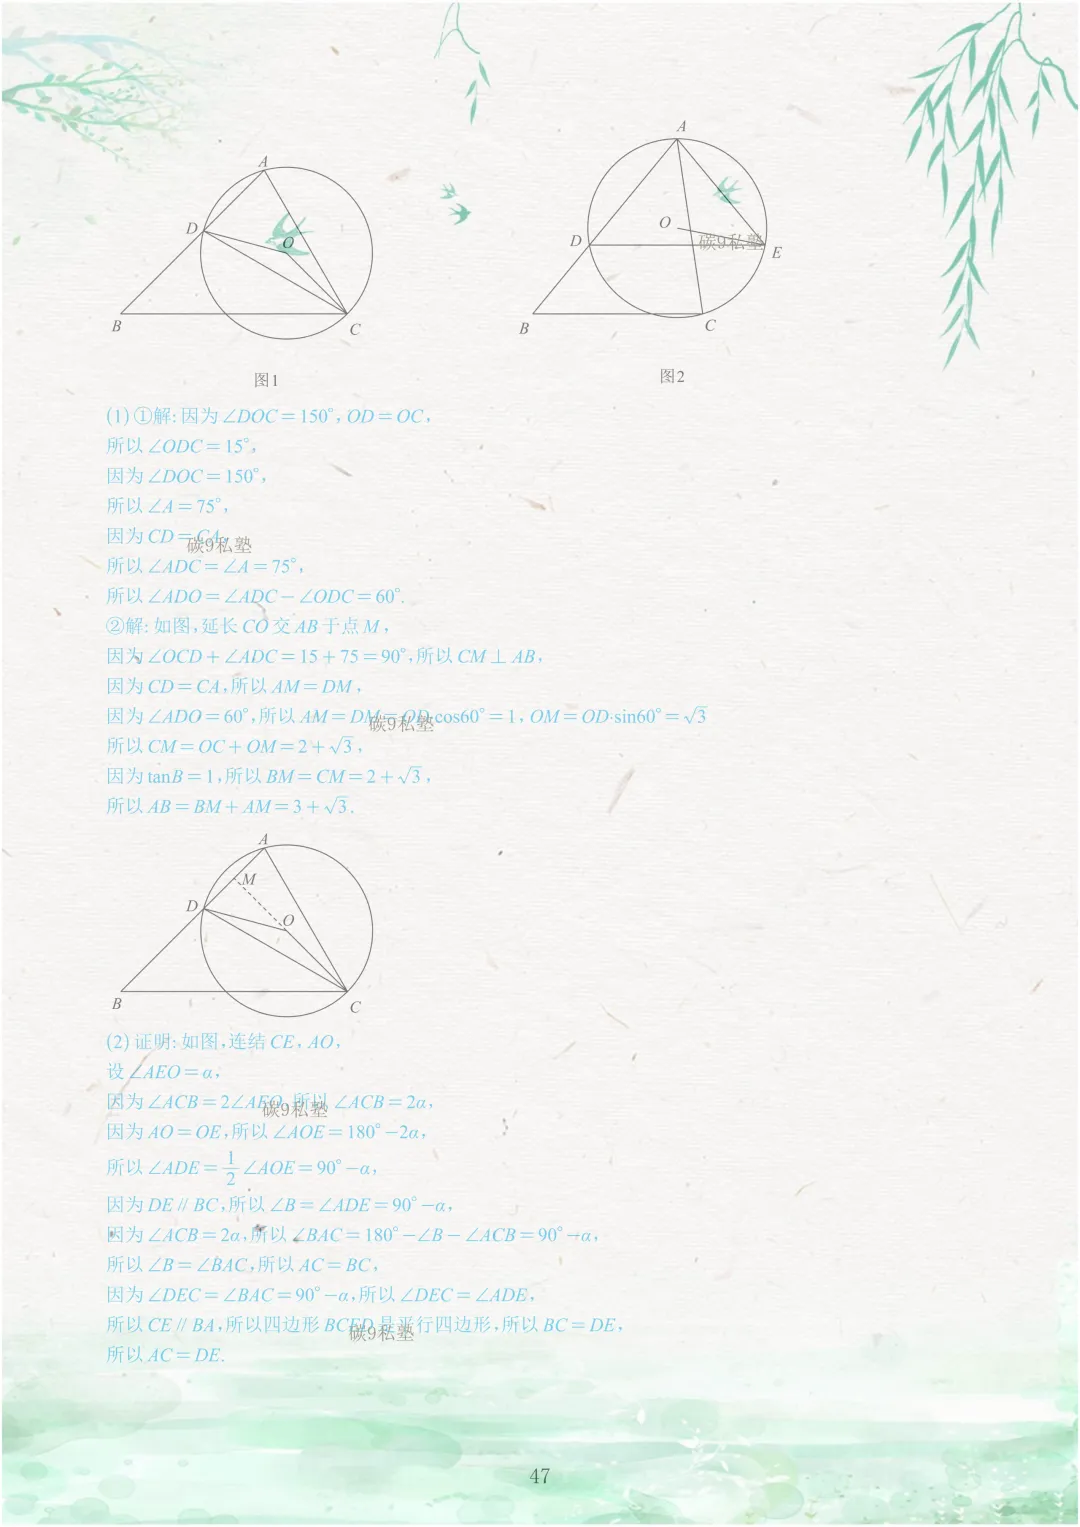 A
D
O
B
C
图1
A
O
碳9私塾
D
E
B
C
图2
(1) ①解: 因为∠DOC=150°, OD=OC,
所以∠ODC=15°,
因为∠DOC=150°,
所以∠A=75°,
因为CD=CA,
碳9私塾
所以∠ADC=∠A=75°,
所以∠ADO=∠ADC-∠ODC=60°.
②解: 如图,延长CO交AB于点M,
因为∠OCD+∠ADC=15+75=90°,所以CM⊥AB,
因为CD=CA,所以AM=DM,
因为∠ADO=60°,所以AM=DM=OD·cos60°=1, OM=OD·sin60°=√3
碳9私塾
所以CM=OC+OM=2+√3,
因为tanB=1,所以BM=CM=2+√3,
所以AB=BM+AM=3+√3.
A
M
D
O
B
C
(2) 证明: 如图,连结CE, AO,
设∠AEO=α,
因为∠ACB=2∠AEO,所以∠ACB=2α,
碳9私塾
因为AO=OE,所以∠AOE=180°-2α,
所以∠ADE=1/2∠AOE=90°-α,
因为DE∥BC,所以∠B=∠ADE=90°-α,
因为∠ACB=2α,所以∠BAC=180°-∠B-∠ACB=90°-α,
所以∠B=∠BAC,所以AC=BC,
因为∠DEC=∠BAC=90°-α,所以∠DEC=∠ADE,
所以CE∥BA,所以四边形BCED是平行四边形,所以BC=DE,
碳9私塾
所以AC=DE.
47